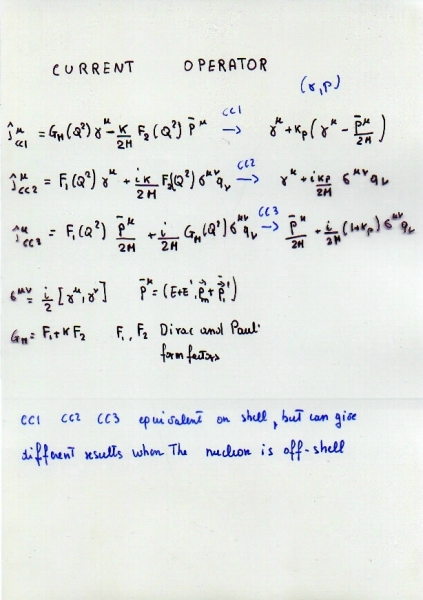 CURRENT OPERATOR
(γ,p)
ĵ^μ_CC1 = G_M(Q²) γ^μ - κ/2M F₂(Q²) P̄^μ CC1 → γ^μ + κ_p (γ^μ - P̄^μ/2M)
ĵ^μ_CC2 = F₁(Q²) γ^μ + iκ/2M F₂(Q²) σ^μν q_ν CC2 → γ^μ + iκ_p/2M σ^μν q_ν
ĵ^μ_CC3 = F₁(Q²) P̄^μ/2M + i/2M G_M(Q²) σ^μν q_ν CC3 → P̄^μ/2M + i/2M (1+κ_p) σ^μν q_ν
σ^μν = i/2 [γ^μ, γ^ν] P̄^μ = (E+E', p⃗_m + p⃗')
G_M = F₁ + κ F₂ F₁, F₂ Dirac and Pauli
form factors
CC1 CC2 CC3 equivalent on shell, but can give
different results when the nucleon is off-shell